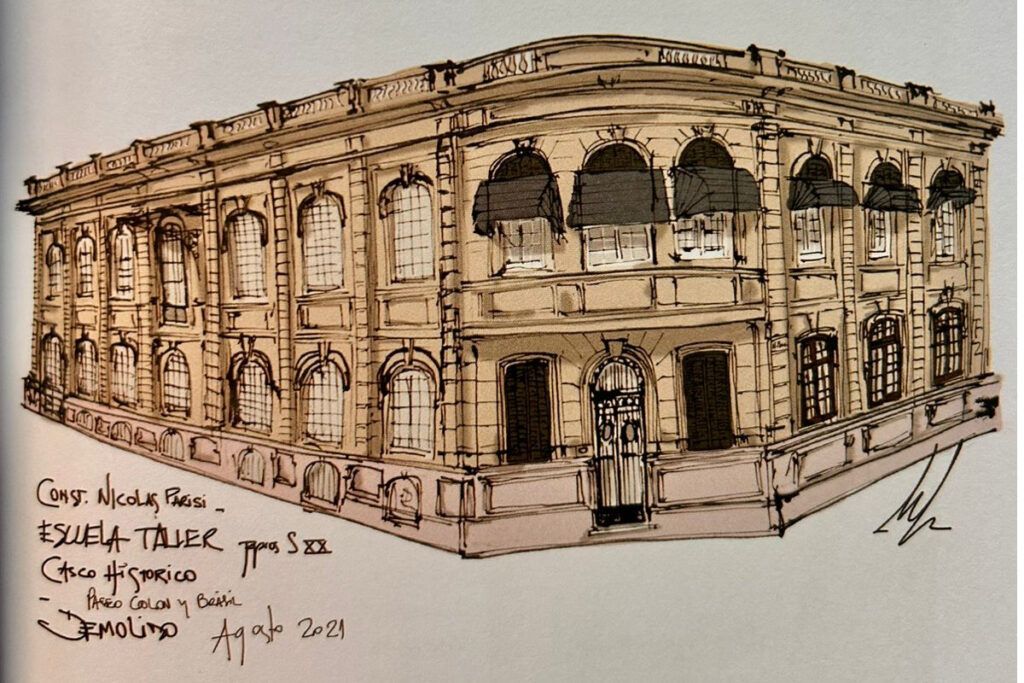 CONST. NICOLAS PARISI -
ESCUELA TALLER ppios S XX
CASCO HISTORICO
- PASEO COLON Y BRASIL
DEMOLIDO Agosto 2021